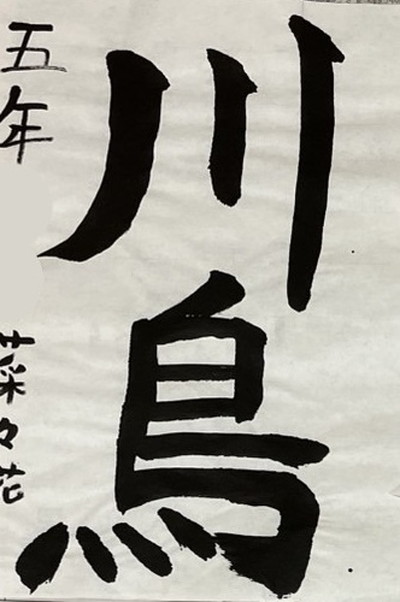 川鳥
五年 菜々花